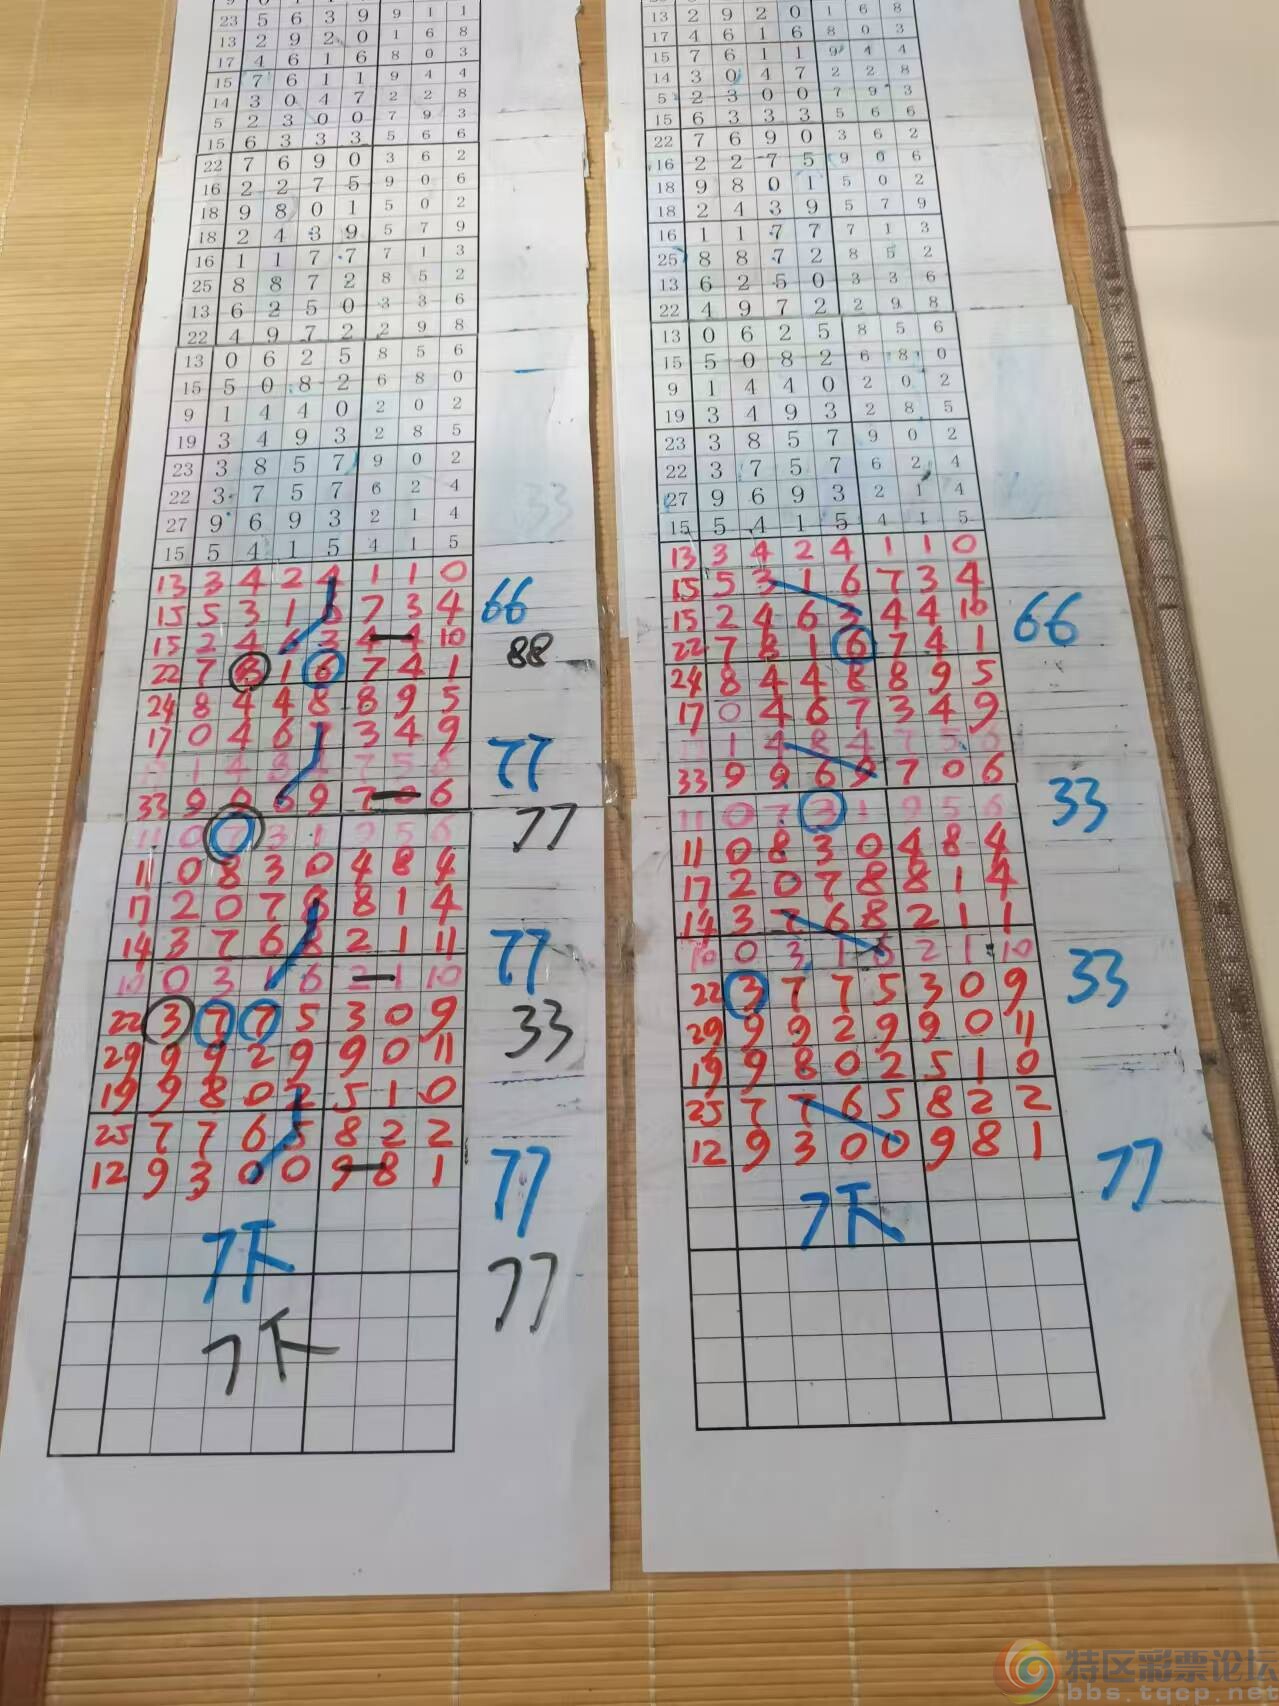 23 5 6 3 9 9 1 1
13 2 9 2 0 1 6 8
17 4 6 1 6 8 0 3
15 7 6 1 1 9 4 4
14 3 0 4 7 2 2 8
5 2 3 0 0 7 9 3
15 6 3 3 3 5 6 6
22 7 6 9 0 3 6 2
16 2 2 7 5 9 0 6
18 9 8 0 1 5 0 2
18 2 4 3 9 5 7 9
16 1 1 7 7 7 1 3
25 8 8 7 2 8 5 2
13 6 2 5 0 3 3 6
22 4 9 7 2 2 9 8
13 0 6 2 5 8 5 6
15 5 0 8 2 6 8 0
9 1 4 4 0 2 0 2
19 3 4 9 3 2 8 5
23 3 8 5 7 9 0 2
22 3 7 5 7 6 2 4
27 9 6 9 3 2 1 4
15 5 4 1 5 4 1 5
13 3 4 2 4 1 1 0
15 5 3 1 6 7 3 4
66
15 2 4 6 3 4 4 10
88
22 7 8 1 6 7 4 1
24 8 4 4 8 8 9 5
17 0 4 6 7 3 4 9
77
33 9 9 6 9 7 0 6
77
11 0 7 3 1 9 5 6
11 0 8 3 0 4 8 4
17 2 0 7 8 8 1 4
14 3 7 6 8 2 1 11
77
10 0 3 1 6 2 1 10
22 3 7 7 5 3 0 9
33
29 9 9 2 9 9 0 11
19 9 8 0 2 5 1 0
25 7 7 6 5 8 2 2
12 9 3 0 0 9 8 1
77
7下
77
7下
13 2 9 2 0 1 6 8
17 4 6 1 6 8 0 3
15 7 6 1 1 9 4 4
14 3 0 4 7 2 2 8
5 2 3 0 0 7 9 3
15 6 3 3 3 5 6 6
22 7 6 9 0 3 6 2
16 2 2 7 5 9 0 6
18 9 8 0 1 5 0 2
18 2 4 3 9 5 7 9
16 1 1 7 7 7 1 3
25 8 8 7 2 8 5 2
13 6 2 5 0 3 3 6
22 4 9 7 2 2 9 8
13 0 6 2 5 8 5 6
15 5 0 8 2 6 8 0
9 1 4 4 0 2 0 2
19 3 4 9 3 2 8 5
23 3 8 5 7 9 0 2
22 3 7 5 7 6 2 4
27 9 6 9 3 2 1 4
15 5 4 1 5 4 1 5
13 3 4 2 4 1 1 0
15 5 3 1 6 7 3 4
15 2 4 6 3 4 4 10
66
22 7 8 1 6 7 4 1
24 8 4 4 8 8 9 5
17 0 4 6 7 3 4 9
1 4 8 4 7 5 6
33 9 9 6 9 7 0 6
33
11 0 7 3 1 9 5 6
11 0 8 3 0 4 8 4
17 2 0 7 8 8 1 4
14 3 7 6 8 2 1 1
10 0 3 1 6 2 1 10
33
22 3 7 7 5 3 0 9
29 9 9 2 9 9 0 11
19 9 8 0 2 5 1 0
25 7 7 6 5 8 2 2
12 9 3 0 0 9 8 1
77
7下
特区彩票论坛
bbs.tqcp.net